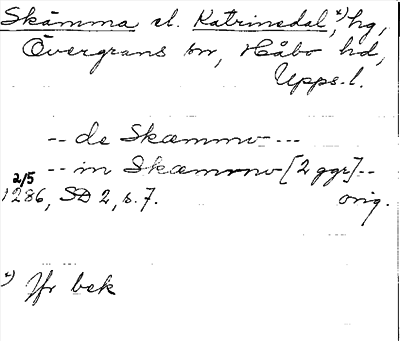 Skämma el. Katrinedal, *) hg,
Övergrans sn, Håbo hd,
Upps. l.
-- de Skæmmo ---
-- in Skæmmo [2 ggr] --
2/5
1286, SD 2, s. 7. orig.
*) Jfr bek